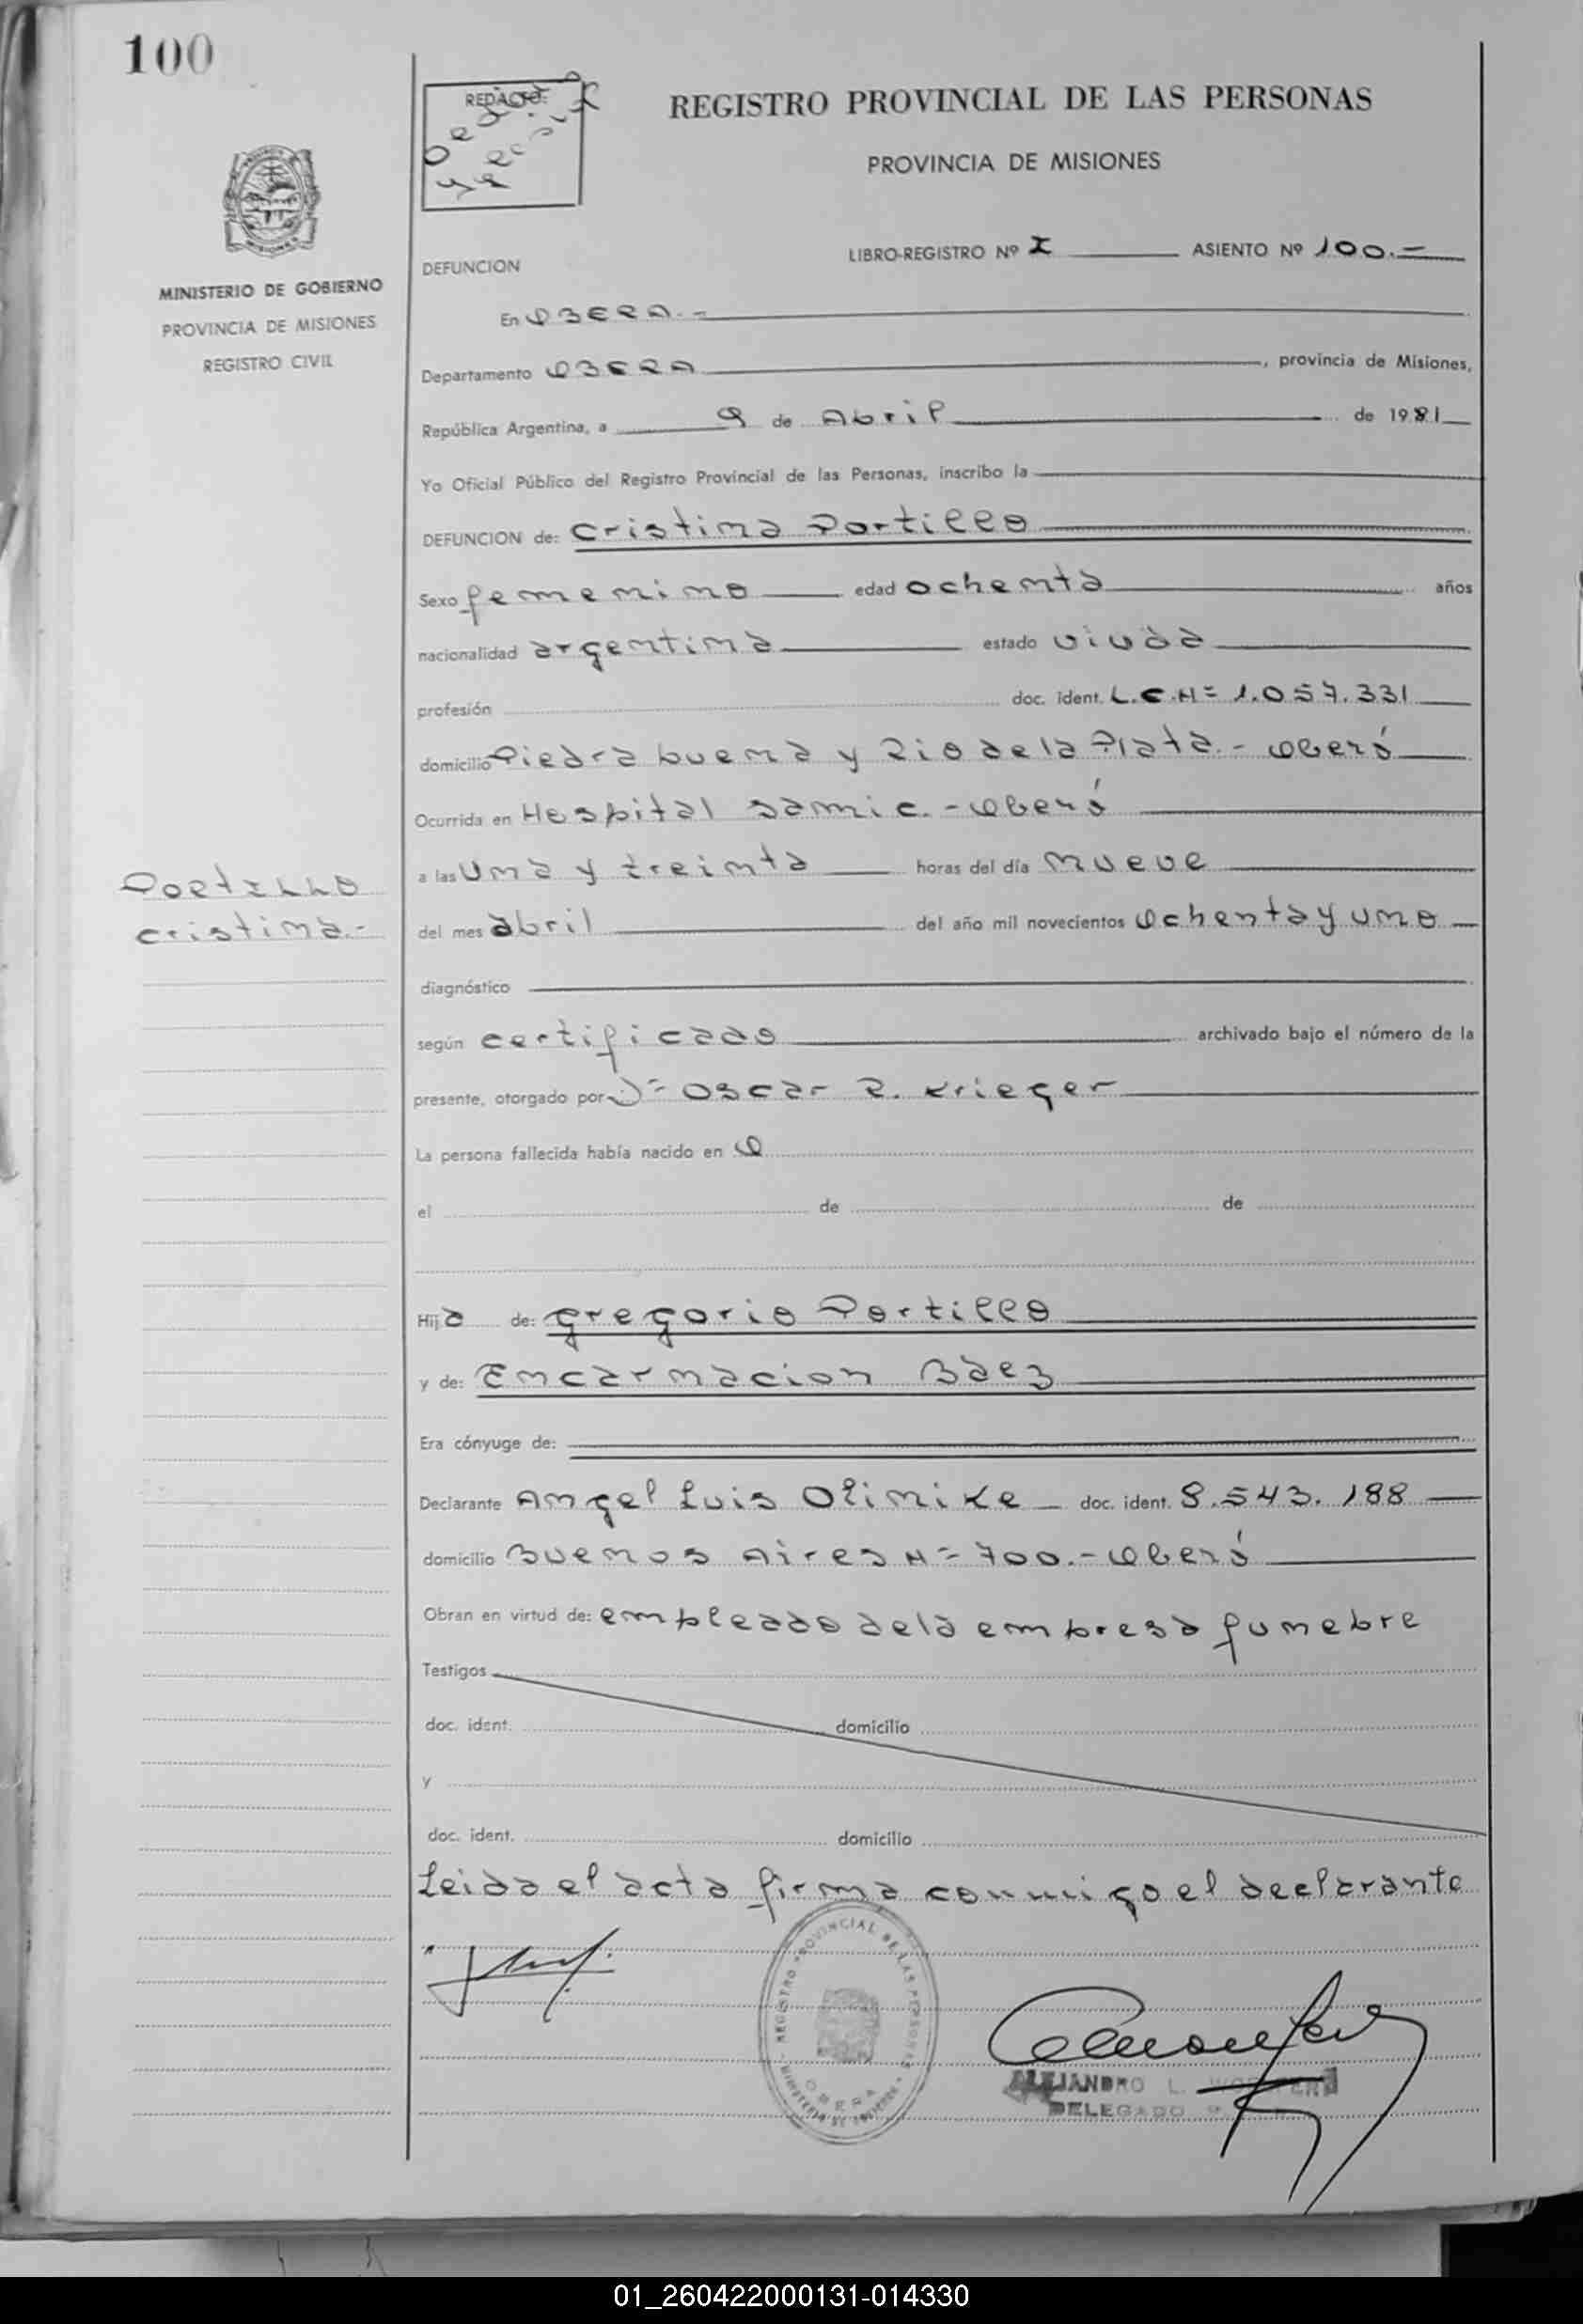 100
REDACTO:
REGISTRO PROVINCIAL DE LAS PERSONAS
PROVINCIA DE MISIONES
MINISTERIO DE GOBIERNO
PROVINCIA DE MISIONES
REGISTRO CIVIL
LIBRO-REGISTRO Nº I ASIENTO Nº 100.-
DEFUNCION
En OBERA.-
Departamento OBERA, provincia de Misiones,
República Argentina, a 9 de Abril de 1981
Yo Oficial Público del Registro Provincial de las Personas, inscribo la
DEFUNCION de: Cristina Portillo
Sexo femenino edad ochenta años
nacionalidad argentina estado viuda
profesión doc. ident. L.C.Nº 1.057.331
domicilio Piedra buena y Rio de la Plata.- Oberá
Ocurrida en Hospital Samic.- Oberá
a las Una y treinta horas del día nueve
PORTILLO
Cristina.-
del mes abril del año mil novecientos Ochenta y uno
diagnóstico
según certificado archivado bajo el número de la
presente, otorgado por Dr Oscar R. Krieger
La persona fallecida había nacido en
el de de
Hija de: Gregorio Portillo
y de: Encarnacion Báez
Era cónyuge de:
Declarante Angel Luis Olinike doc. ident. 8.543.188
domicilio Buenos Aires Nº 700.- Oberá
Obran en virtud de: empleado de la empresa funebre
Testigos
doc. ident. domicilio
y
doc. ident. domicilio
Leida el acta firma conmigo el declarante
REGISTRO PROVINCIAL DE LAS PERSONAS
OBERA
MINISTERIO DE GOBIERNO
ALEJANDRO L.
DELEGADO
01_260422000131-014330